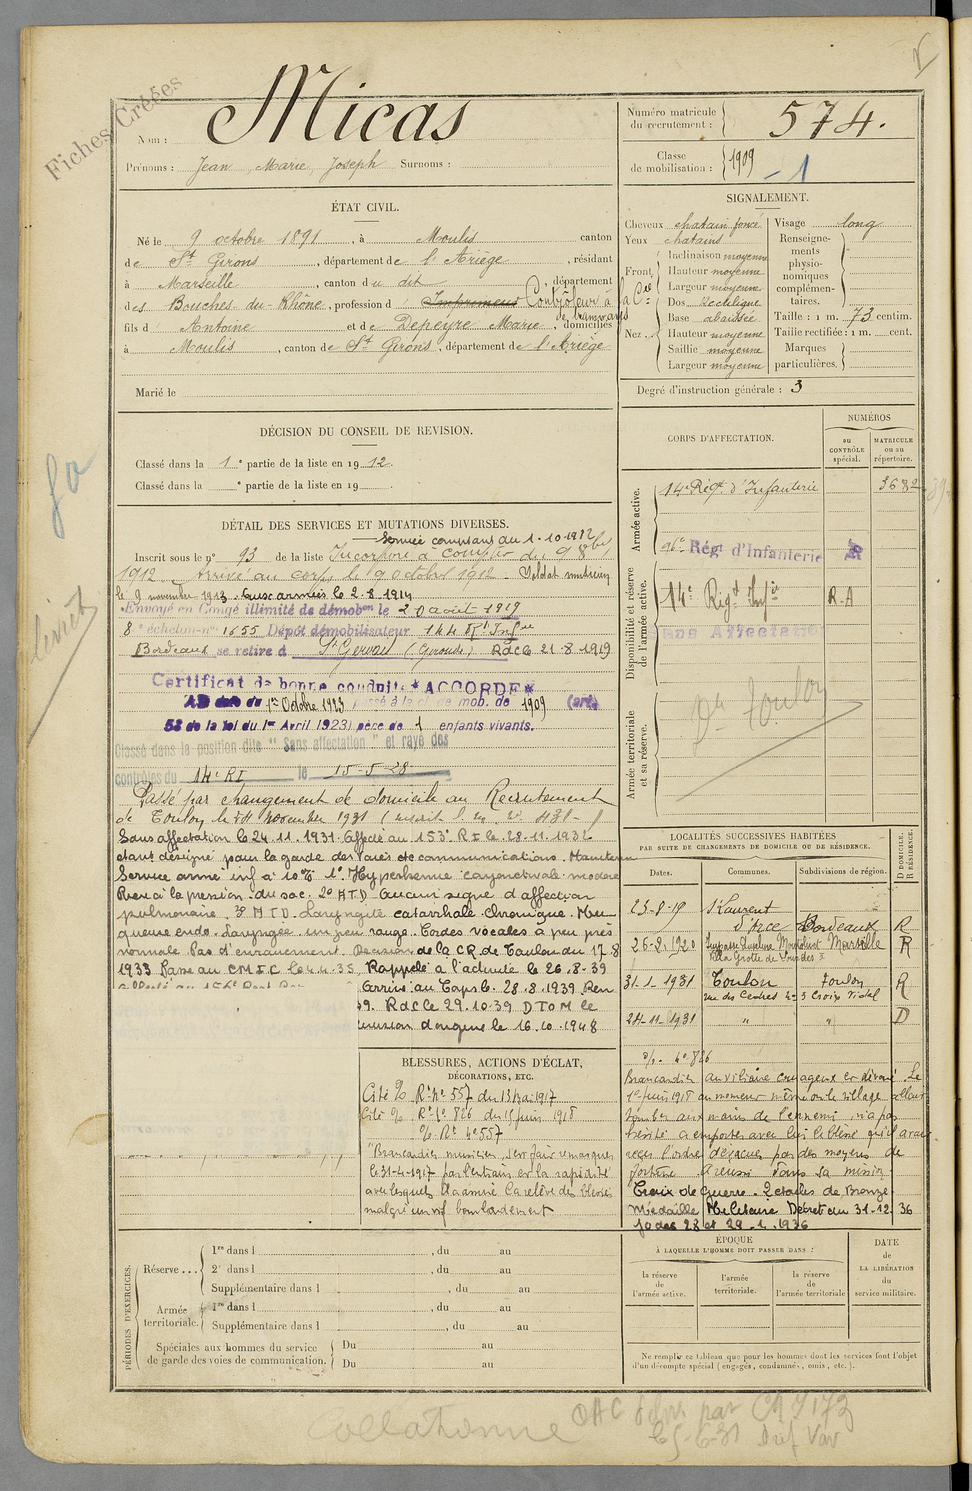 Fiches Créées
Nom : Micas
Prénoms : Jean Marie Joseph Surnoms :
Numéro matricule du recrutement : 574.
Classe de mobilisation : 1909 - 1
ÉTAT CIVIL.
Né le 9 octobre 1891, à Moulis canton
de St Girons, département de l'Ariège, résidant
à Marseille, canton du dit, département
des Bouches-du-Rhône, profession d' Imprimeur Contrôleur à la Cie
de tramways
fils d Antoine et de Depeyre Marie, domiciliés
à Moulis, canton de St Girons, département de l'Ariège
Marié le
SIGNALEMENT.
Cheveux chatain foncé
Yeux chatains
Front Inclinaison moyenne
Hauteur moyenne
Largeur moyenne
Nez Dos rectiligne
Base abaissée
Hauteur moyenne
Saillie moyenne
Largeur moyenne
Visage long
Renseignements physionomiques complémentaires.
Taille : 1 m. 73 centim.
Taille rectifiée : 1 m. cent.
Marques particulières.
Degré d'instruction générale : 3
DÉCISION DU CONSEIL DE REVISION.
Classé dans la 1e partie de la liste en 1912.
Classé dans la e partie de la liste en 19
CORPS D'AFFECTATION.
NUMÉROS
au CONTRÔLE spécial.
MATRICULE ou au répertoire.
Armée active.
14e Régt d'Infanterie 3682
96e Régt d'Infanterie
Disponibilité et réserve de l'armée active.
14e Régt Infie R.A
Sans Affectation
Armée territoriale et sa réserve.
Toulon
DÉTAIL DES SERVICES ET MUTATIONS DIVERSES.
Service comptant du 1-10-1912
Inscrit sous le n° 93 de la liste Incorporé à compter du 9 8bre
1912 Arrivé au corps le 9 octobre 1912 - Soldat musicien
le 9 novembre 1913. Aux armées le 2-8-1914
Envoyé en Congé illimité de démobon le 20 août 1919
8e échelon n° 1655 Dépôt démobilisateur 144 Rt Infie
Bordeaux se retire à St Gervais (Gironde) RdC le 21-8-1919
Certificat de bonne conduite * ACCORDÉ *
A la date du 1er Octobre 1923 passé à la cl. de mob. de 1909 (art.
58 de la loi du 1er Avril 1923) père de 1 enfants vivants.
Classé dans la position dite " Sans affectation " et rayé des
contrôles du 14e RI le 15-5-28
Passé par changement de domicile au Recrutement
de Toulon le 24 novembre 1931
Sans affectation le 24.11.1931. Affecté au 153e R I le 28-11-1932
étant désigné pour la garde des Voies de communications. Maintenu
Service armé inf à 10% 1° Hyperhémie conjonctivale modérée
2° A.T.D Aucun signe d'affection
pulmonaire. 3° Laryngite catarrhale chronique.
un peu rouge. Cordes vocales à peu près
normale Pas d'enrouement. Décision de la CR de Toulon du 17.8
1933 Passe au CM I C le Rappelé à l'activité le 26.8-39
Arrivé au Corps le 28.8.1939 Ren
RdC le 29.10.39 DTOM le
le 16.10.1948
LOCALITÉS SUCCESSIVES HABITÉES
PAR SUITE DE CHANGEMENTS DE DOMICILE OU DE RÉSIDENCE.
Dates. Communes. Subdivisions de région. D DOMICILE. R RÉSIDENCE.
23-8-19 St Laurent d'Arce Bordeaux R
26-8-1920 Marseille R
31-1-1931 Toulon Toulon R
24-11-1931 " " D
BLESSURES, ACTIONS D'ÉCLAT,
DÉCORATIONS, ETC.
Cité % Rt n° 557 du 13 mai 1917
Cité % Rt n° 826 du 15 juin 1918
% Rt n° 557
"Brancardier musicien, s'est fait remarquer
le 31-4-1917 par l'entrain et la rapidité
avec lesquels il a amené la relève des blessés
malgré un vif bombardement
% n° 826
Brancardier auxiliaire courageux et dévoué. Le
1er juin 1918 au moment même où le village allait
tomber aux mains de l'ennemi, n'a pas
hésité à emporter avec lui le blessé qu'il avait
reçu l'ordre d'évacuer par des moyens de
fortune. A réussi dans sa mission
Croix de guerre. 2 étoiles de Bronze
Médaille Militaire Décret du 31-12-36
Jo des 28 et 29-1.1936
PÉRIODES D'EXERCICES.
Réserve... 1re dans l , du au
2e dans l , du au
Supplémentaire dans l , du au
Armée territoriale. 1re dans l , du au
Supplémentaire dans l , du au
Spéciales aux hommes du service de garde des voies de communication. Du au
Du au
ÉPOQUE
À LAQUELLE L'HOMME DOIT PASSER DANS :
la réserve de l'armée active.
l'armée territoriale.
la réserve de l'armée territoriale
DATE DE LA LIBÉRATION du service militaire.
Ne remplir ce tableau que pour les hommes dont les services font l'objet
d'un décompte spécial (engagés, condamnés, omis, etc.).
Collationné